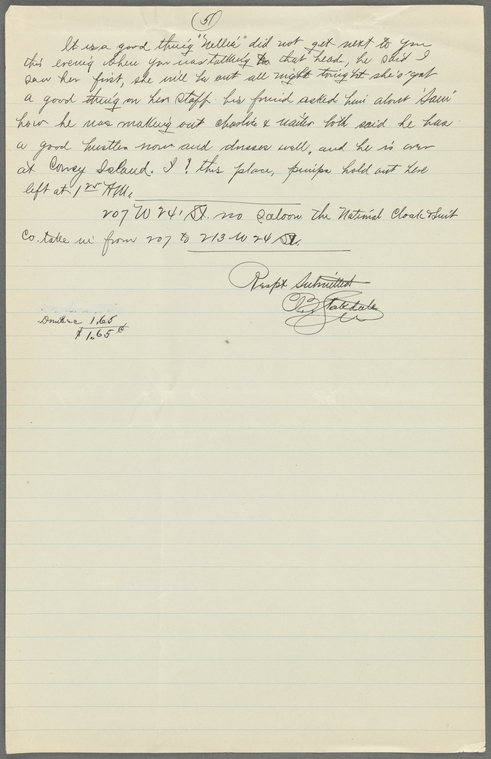 (5)
It is a good thing "Nellie" did not get next to you
this evening when you was talking to that head, he said I
saw her first, she will be out all night tonight she's got
a good thing on her staff his friend asked him about "Sam"
how he was making out Charlie & waiter both said he has
a good hustler now and dresses well, and he is over
at Coney Island. I ? this place, pimps hold out here
left at 1 25 AM.
207 W 24' St. no Saloon The National Cloak & Suit
Co. take in from 207 to 213 W 24 St.
Respt Submitted
Drinks 1.65
$ 1.65